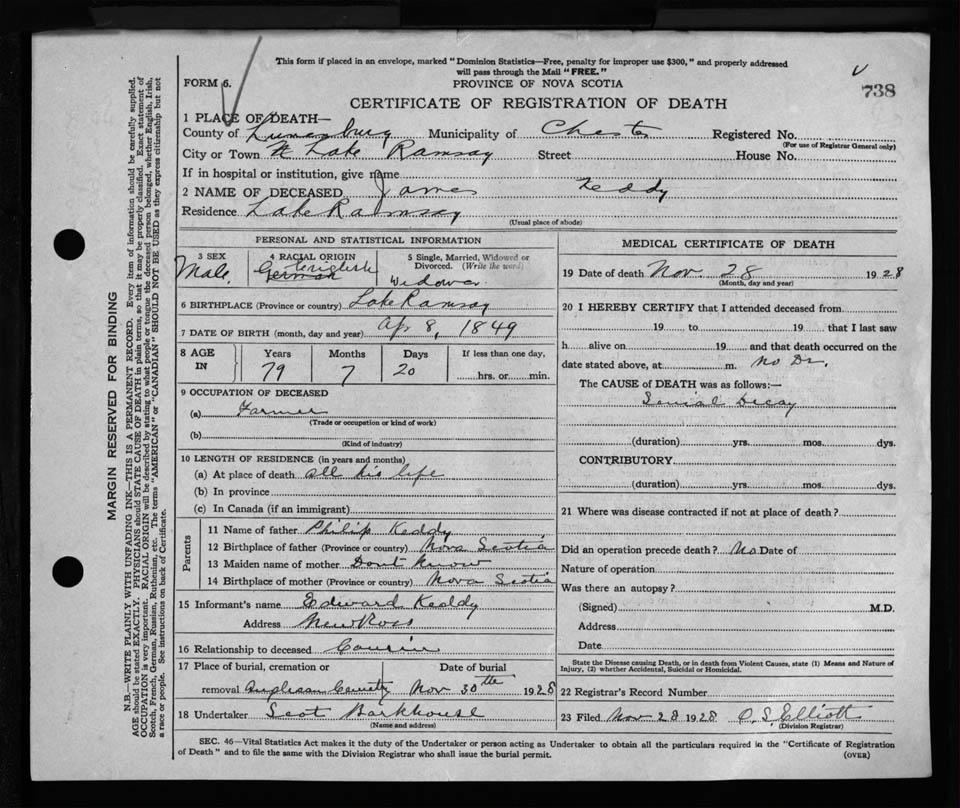 This form if placed in an envelope, marked "Dominion Statistics—Free, penalty for improper use $300," and properly addressed
will pass through the Mail "FREE."
FORM 6.
PROVINCE OF NOVA SCOTIA
738
CERTIFICATE OF REGISTRATION OF DEATH
1 PLACE OF DEATH—
County of Lunenburg Municipality of Chester Registered No.
(For use of Registrar General only)
City or Town Lake Ramsay Street House No.
If in hospital or institution, give name
2 NAME OF DECEASED James Keddy
Residence Lake Ramsay
(Usual place of abode)
PERSONAL AND STATISTICAL INFORMATION
3 SEX 4 RACIAL ORIGIN 5 Single, Married, Widowed or Divorced. (Write the word)
Male. German English Widower
6 BIRTHPLACE (Province or country) Lake Ramsay
7 DATE OF BIRTH (month, day and year) Apr 8, 1849
8 AGE IN Years Months Days If less than one day,
79 7 20 hrs. or min.
9 OCCUPATION OF DECEASED
(a) Farmer
(Trade or occupation or kind of work)
(b)
(Kind of industry)
10 LENGTH OF RESIDENCE (in years and months)
(a) At place of death all his life
(b) In province
(c) In Canada (if an immigrant)
Parents
11 Name of father Philip Keddy
12 Birthplace of father (Province or country) Nova Scotia
13 Maiden name of mother Dont Know
14 Birthplace of mother (Province or country) Nova Scotia
15 Informant's name Edward Keddy
Address New Ross
16 Relationship to deceased Cousin
17 Place of burial, cremation or Date of burial
removal Nov 30th 1928
18 Undertaker Scot Barkhouse
(Name and address)
MEDICAL CERTIFICATE OF DEATH
19 Date of death Nov 28 1928
(Month, day and year)
20 I HEREBY CERTIFY that I attended deceased from
19 to 19 that I last saw
h alive on 19 and that death occurred on the
date stated above, at m. No Dr.
The CAUSE of DEATH was as follows:—
Senial Decay
(duration) yrs. mos. dys.
CONTRIBUTORY
(duration) yrs. mos. dys.
21 Where was disease contracted if not at place of death?
Did an operation precede death? No Date of
Nature of operation
Was there an autopsy?
(Signed) M.D.
Address
Date
State the Disease causing Death, or in death from Violent Causes, state (1) Means and Nature of
Injury, (2) whether Accidental, Suicidal or Homicidal.
22 Registrar's Record Number
23 Filed Nov 28 1928 O. S. Elliott
(Division Registrar)
SEC. 46—Vital Statistics Act makes it the duty of the Undertaker or person acting as Undertaker to obtain all the particulars required in the "Certificate of Registration
of Death" and to file the same with the Division Registrar who shall issue the burial permit.
(OVER)
MARGIN RESERVED FOR BINDING
N.B.—WRITE PLAINLY WITH UNFADING INK—THIS IS A PERMANENT RECORD. Every item of information should be carefully supplied.
AGE should be stated EXACTLY. PHYSICIANS should STATE CAUSE OF DEATH in plain terms, so that it may be properly classified. Exact statement of
OCCUPATION is very important. RACIAL ORIGIN will be described by stating to what people or tongue the deceased person belonged, whether English, Irish,
Scotch, French, German, Russian, Ruthenian, etc. The terms "AMERICAN" or "CANADIAN" SHOULD NOT BE USED as they express citizenship but not
a race or people. See instructions on back of Certificate.